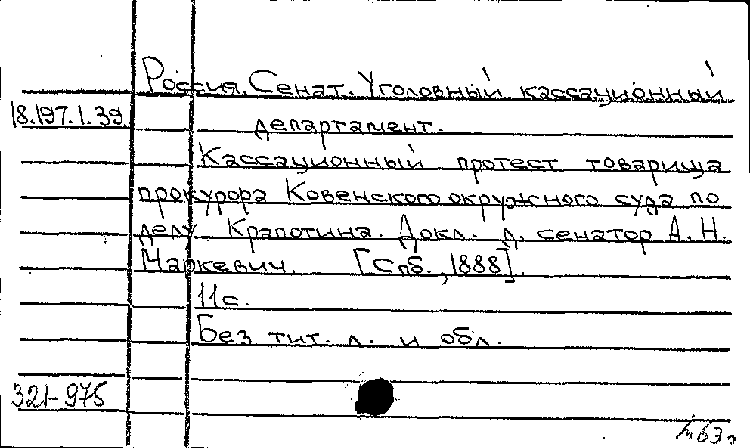 Россия. Сенат. Уголовный кассационный
18.197.1.39. департамент.
Кассационный протест товарища
прокурора Ковенского окружного суда по
делу Крапотина. Докл. д. сенатор А. Н.
Маркевич. [Спб., 1888].
11с.
Без тит. л. и обл.
321-975